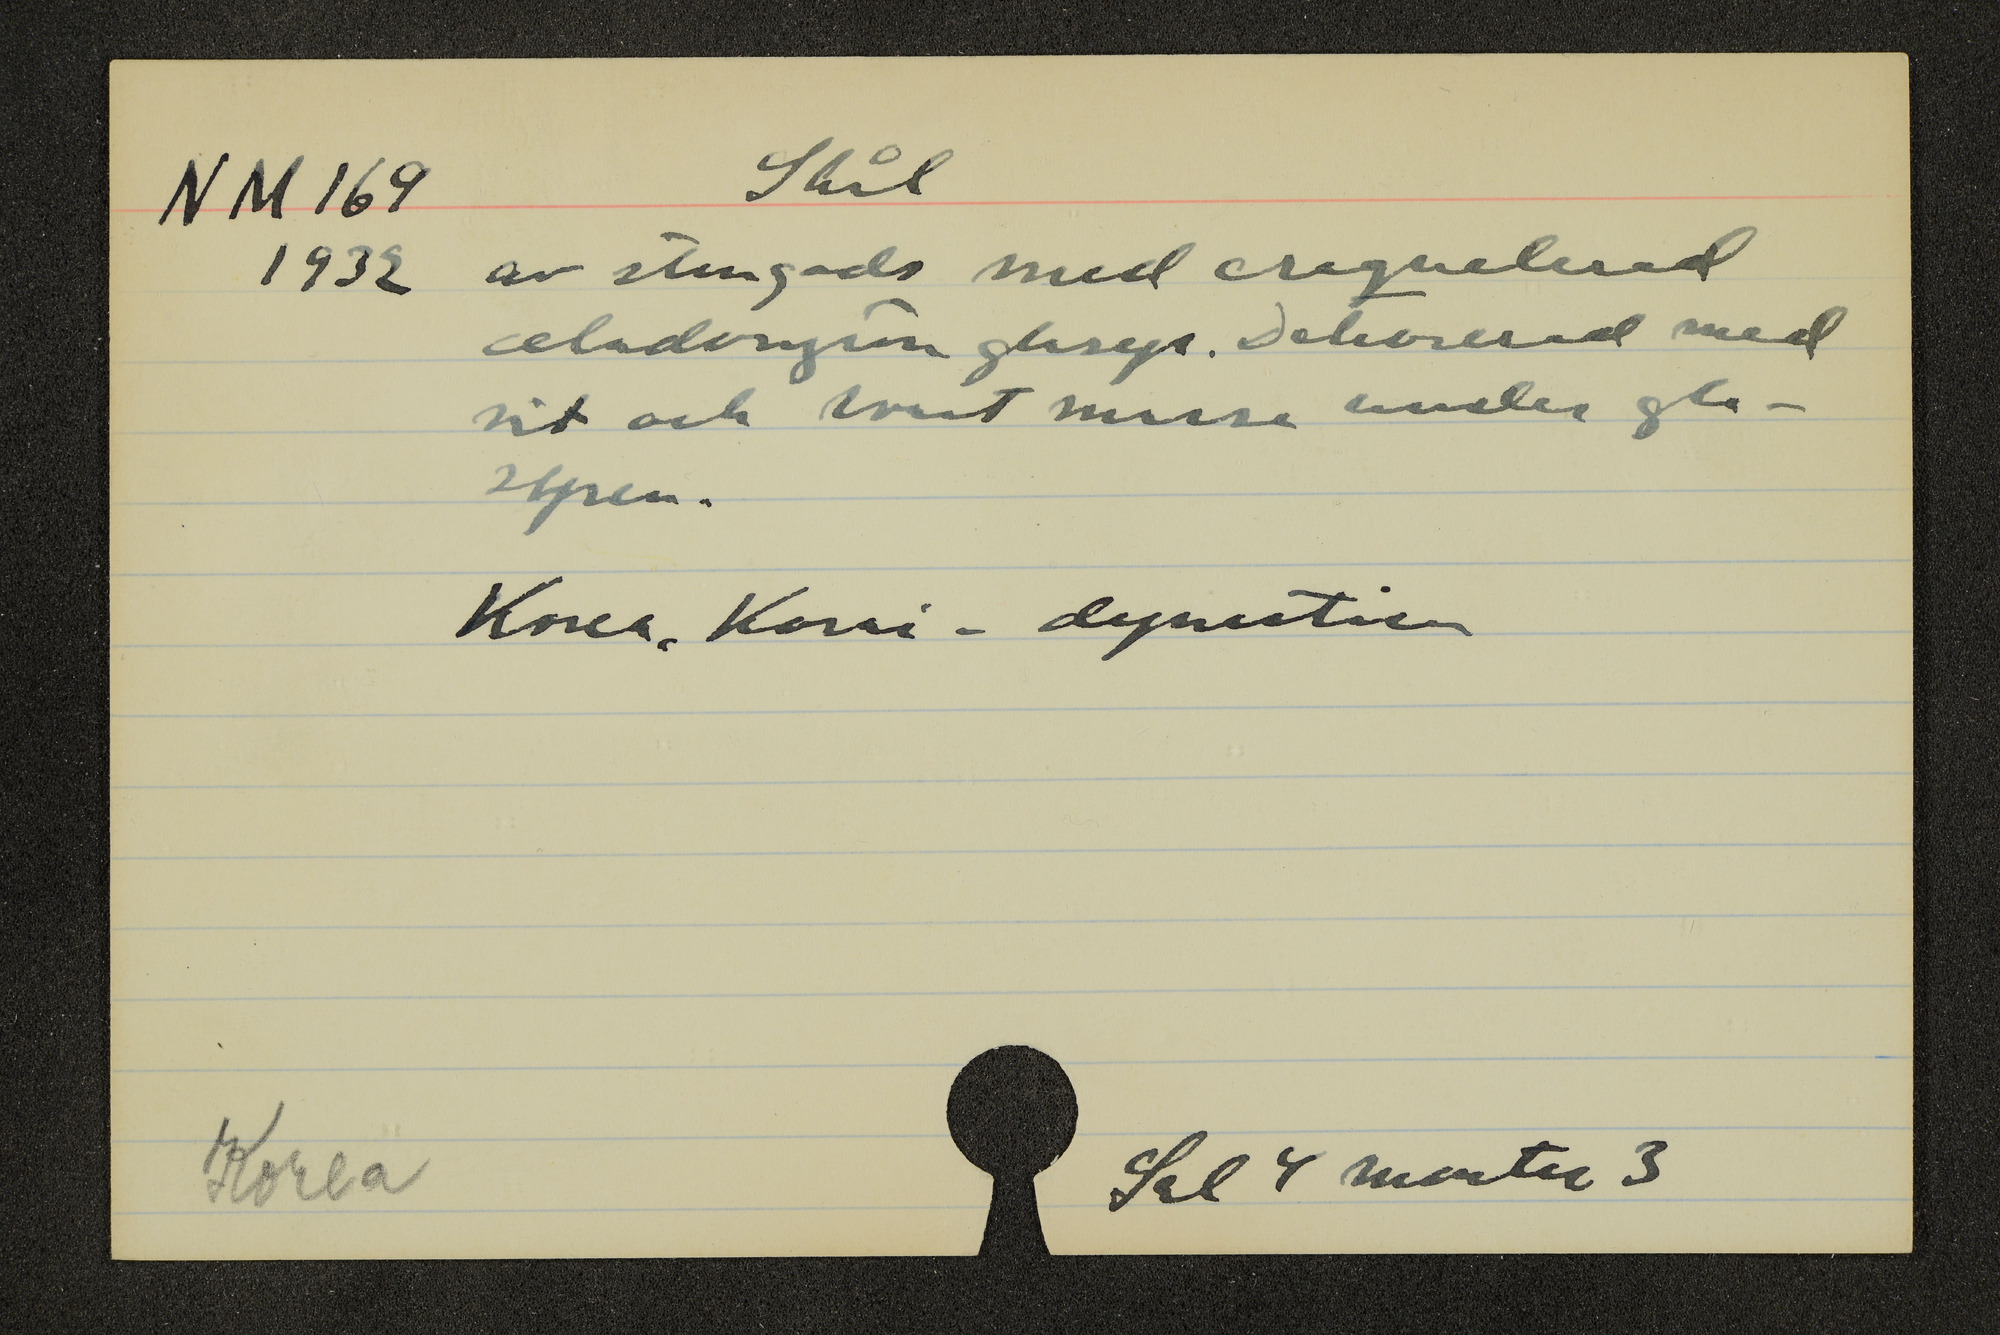 NM 169 Skål
1932 av stengods med craquelerad
celadongrön glasyr. Dekorerad med
vit och svart massa under gla-
syren.
Korea. Korai-dynastien
Korea
Sal 4 monter 3